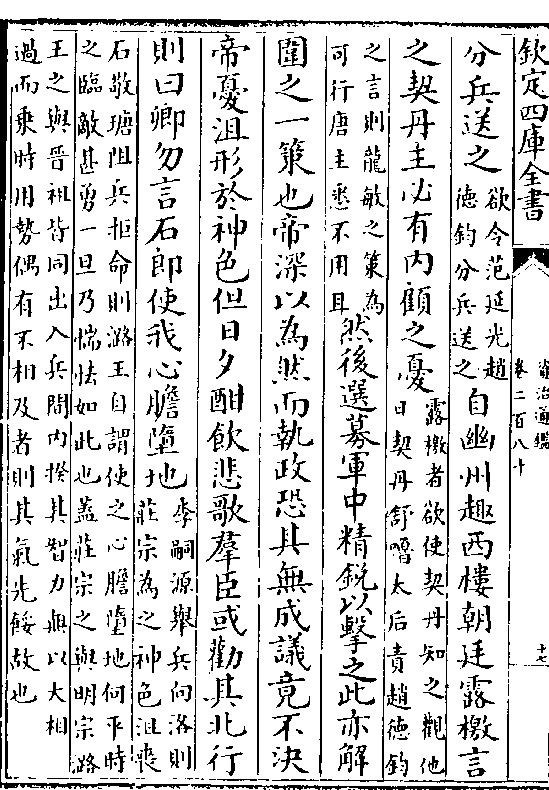 欽定四庫全書
資治通鑑
卷二百八十
十七
分兵送之
欲令范延光趙
德鈞分兵送之
自幽州趣西樓朝廷露檄言
之契丹主必有內顧之憂
露檄者欲使契丹知之觀他
日契丹舒嚕太后責趙德鈞
之言則龍敏之策為
可行唐主悉不用耳
然後選募軍中精銳以擊之此亦解
圍之一策也帝深以為然而執政恐其無成議竟不決
帝憂沮形於神色但日夕酣飲悲歌羣臣或勸其北行
則曰卿勿言石郎使我心膽墮地
李嗣源舉兵向洛則
莊宗為之神色沮喪
石敬瑭阻兵拒命則潞王自謂使之心膽墮地何平時
之臨敵甚勇一旦乃惴怯如此也蓋莊宗之與明宗潞
王之與晉祖皆同出入兵間内揆其智力無以大相
過而乗時用勢偶有不相及者則其氣先餒故也